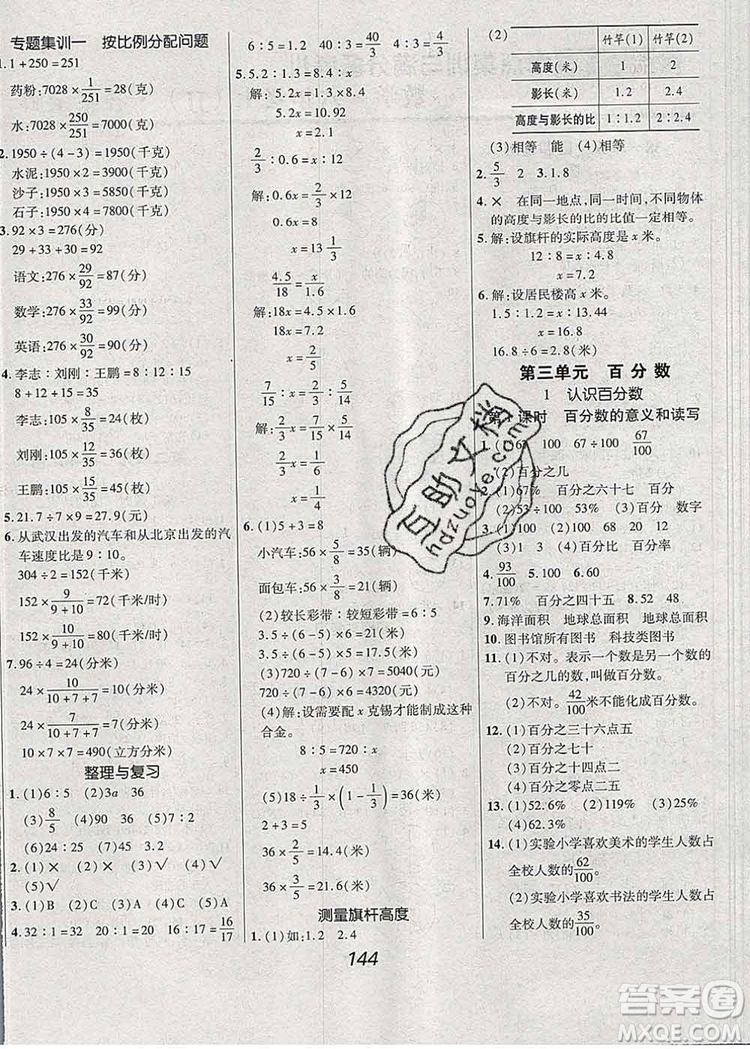 专题集训一 按比例分配问题
1.1+250=251
药粉:7028×1/251=28(克)
水:7028×250/251=7000(克)
2.1950÷(4-3)=1950(千克)
水泥:1950×2=3900(千克)
沙子:1950×3=5850(千克)
石子:1950×4=7800(千克)
3.92×3=276(分)
29+33+30=92
语文:276×29/92=87(分)
数学:276×33/92=99(分)
英语:276×30/92=90(分)
4.李志:刘刚:王鹏=8:12:15
8+12+15=35
李志:105×8/35=24(枚)
刘刚:105×12/35=36(枚)
王鹏:105×15/35=45(枚)
5.21.7÷7×9=27.9(元)
6.从武汉出发的汽车和从北京出发的汽
车速度比是9:10。
304÷2=152(千米)
152×9/(9+10)=72(千米/时)
152×10/(9+10)=80(千米/时)
7.96÷4=24(分米)
24×10/(10+7+7)=10(分米)
24×7/(10+7+7)=7(分米)
10×7×7=490(立方分米)
整理与复习
1.(1)6:5 (2)3a 36
(3)8/5 (4)90 36 (5)7:2
(6)24 54
2.(1)× (2)× (3)× (4)√
(5)√
3.(1)B (2)A (3)C (4)A (5)C
4.32:1=32 20:1=20 16:17=16/17
6:5=1.2 40:3=40/3
5.5.2:1.3=8.4:x
解:5.2x=1.3×8.4
5.2x=10.92
x=2.1
2/3:0.6=x:9
解:0.6x=2/3×9
0.6x=8
x=13 1/3
4.5/18=x/1.6
解:18x=4.5×1.6
18x=7.2
x=2/5
7/15:x=8/15:2/7
8/15x=7/15×2/7
8/15x=2/15
x=1/4
6.(1)5+3=8
小汽车:56×5/8=35(辆)
面包车:56×3/8=21(辆)
(2)较长彩带=6:5
3.5÷(6-5)×6=21(米)
3.5÷(6-5)×5=17.5(米)
(3)720÷(8-7)×7=5040(元)
720÷(8-7)×8=5760(元)
(4)解:设需要配x克锡才能制成这种
合金。
8:5=720:x
x=450
(5)18÷[1/3×(1-1/3)]=36(米)
2+3=5
36×2/5=14.4(米)
36×3/5=21.6(米)
测量旗杆高度
1.(1)如:1.2 2.4
144
(2)
竹竿(1) 竹竿(2)
高度(米) 1 2
影长(米) 1.2 2.4
高度与影长的比 1:1.2 2:2.4
(3)相等 能 (4)相等
2.5/3 2 3.1.8
4.× 在同一地点,同一时间,不同物体
的高度与影长的比的比值一定相等。
5.解:设旗杆的实际高度是x米。
12:8=x:9
x=13.5
6.解:设居民楼高x米。
1.5:1.2=x:13.44
x=16.8
16.8÷6=2.8(米)
第三单元 百分数
1 认识百分数
课时 百分数的意义和读写
67 100 67÷100 67/100
(2)百分之几
(1)67% 百分之六十七 百分
(2)53÷100 100 53 百分 数字
(3)10÷50 100 68 20 12
3.(1)3 (2)1 (3)4 (4)5
(5)1 (6)4 (7)百分比 百分率
4.93/100 5.100 6.0
7.71% 百分之四十五 8.52 48
9.海洋面积 地球总面积 地球总面积
10.图书馆所有图书 科技类图书
11.(1)不对。表示一个数是另一个数的
百分之几的数,叫做百分数。
(2)不对。42/100米不能化成百分数。
12.(1)百分之三十六点五
(2)百分之七十
(3)百分之一百零四点二
(4)百分之零点二
13.(1)52.6% (2)119% (3)25%
(4)12.5% (5)0.2%
14.(1)实验小学喜欢美术的学生人数占
全校人数的62/100。
(2)实验小学喜欢书法的学生人数占
全校人数的35/100。
互助文档
hpznoye.com
答案圈
MXQE.COM